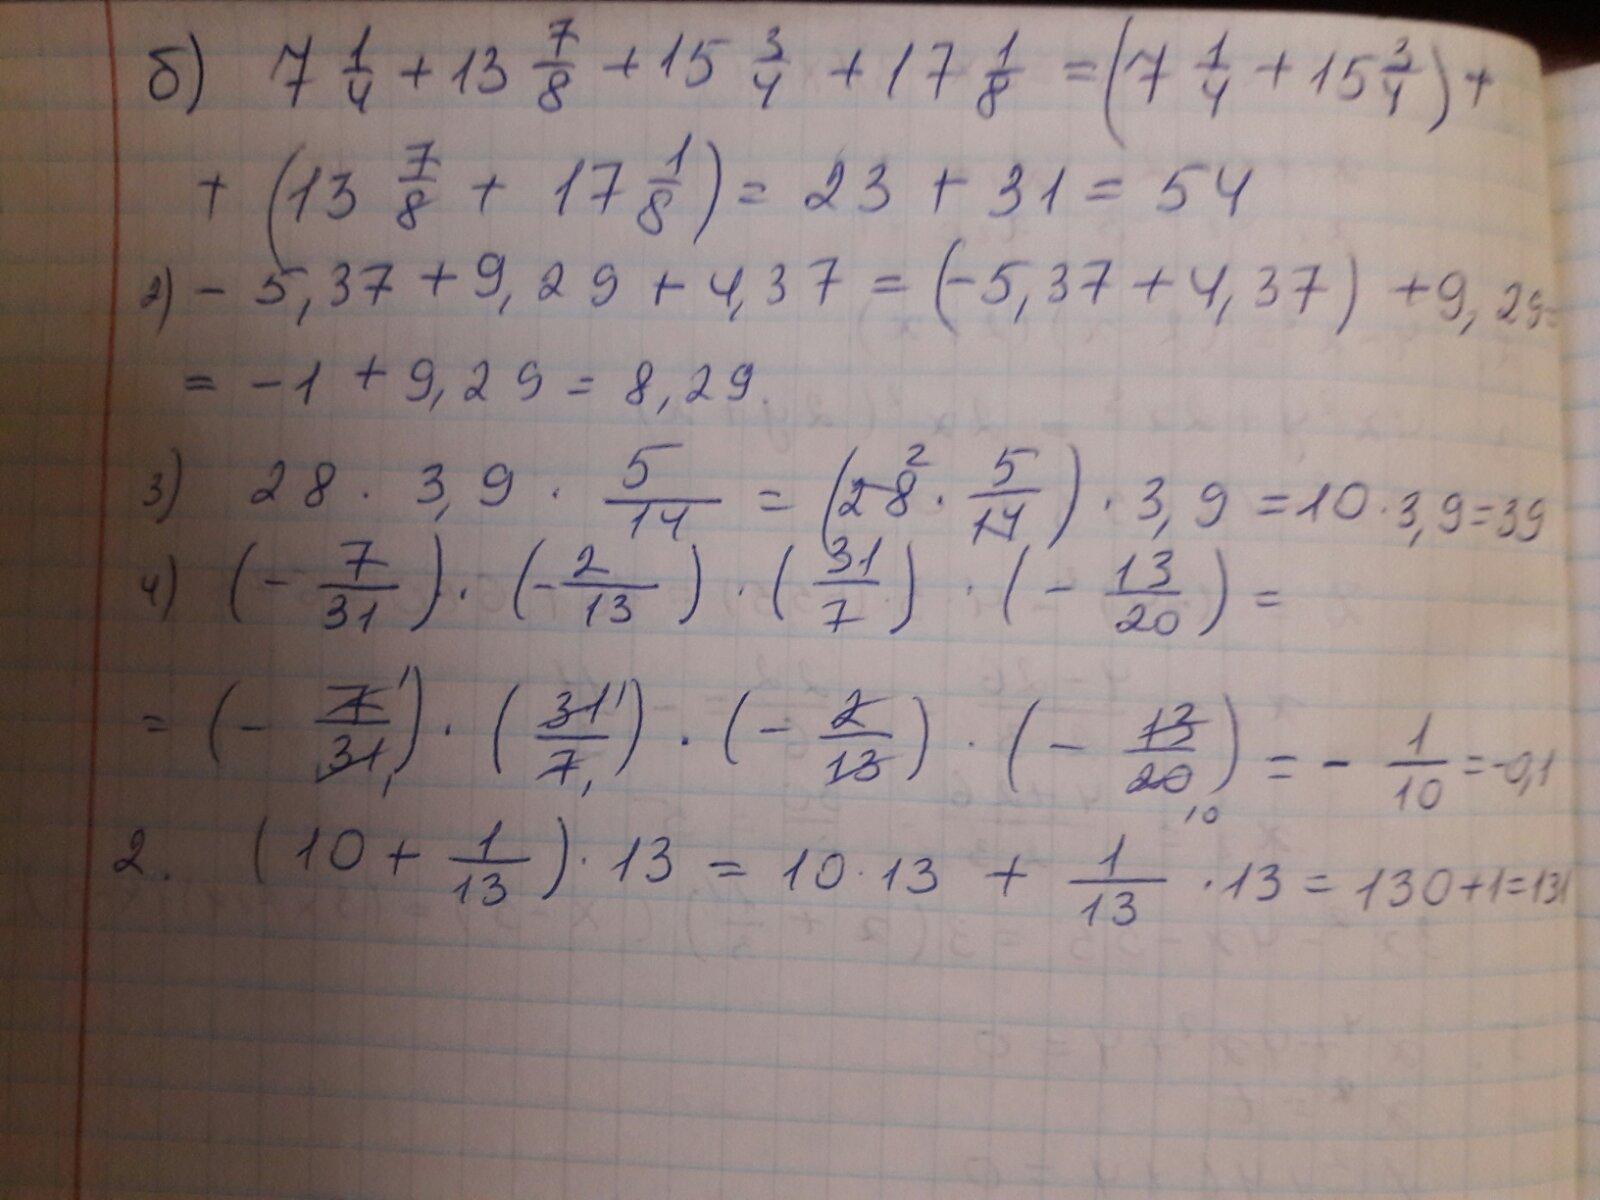 б) 7 1/4 + 13 7/8 + 15 3/4 + 17 1/8 = (7 1/4 + 15 3/4) +
+ (13 7/8 + 17 1/8) = 23 + 31 = 54
2) - 5,37 + 9,29 + 4,37 = (-5,37 + 4,37) + 9,29=
= -1 + 9,29 = 8,29.
3) 28 · 3,9 · 5/14 = (28 2 · 5/14) · 3,9 = 10 · 3,9 = 39
4) (- 7/31) · (- 2/13) · (31/7) · (- 13/20) =
= (- 7 1/31 1) · (31 1/7 1) · (- 2/13) · (- 13/20 10) = - 1/10 = -0,1
2. (10 + 1/13) · 13 = 10 · 13 + 1/13 · 13 = 130 + 1 = 131